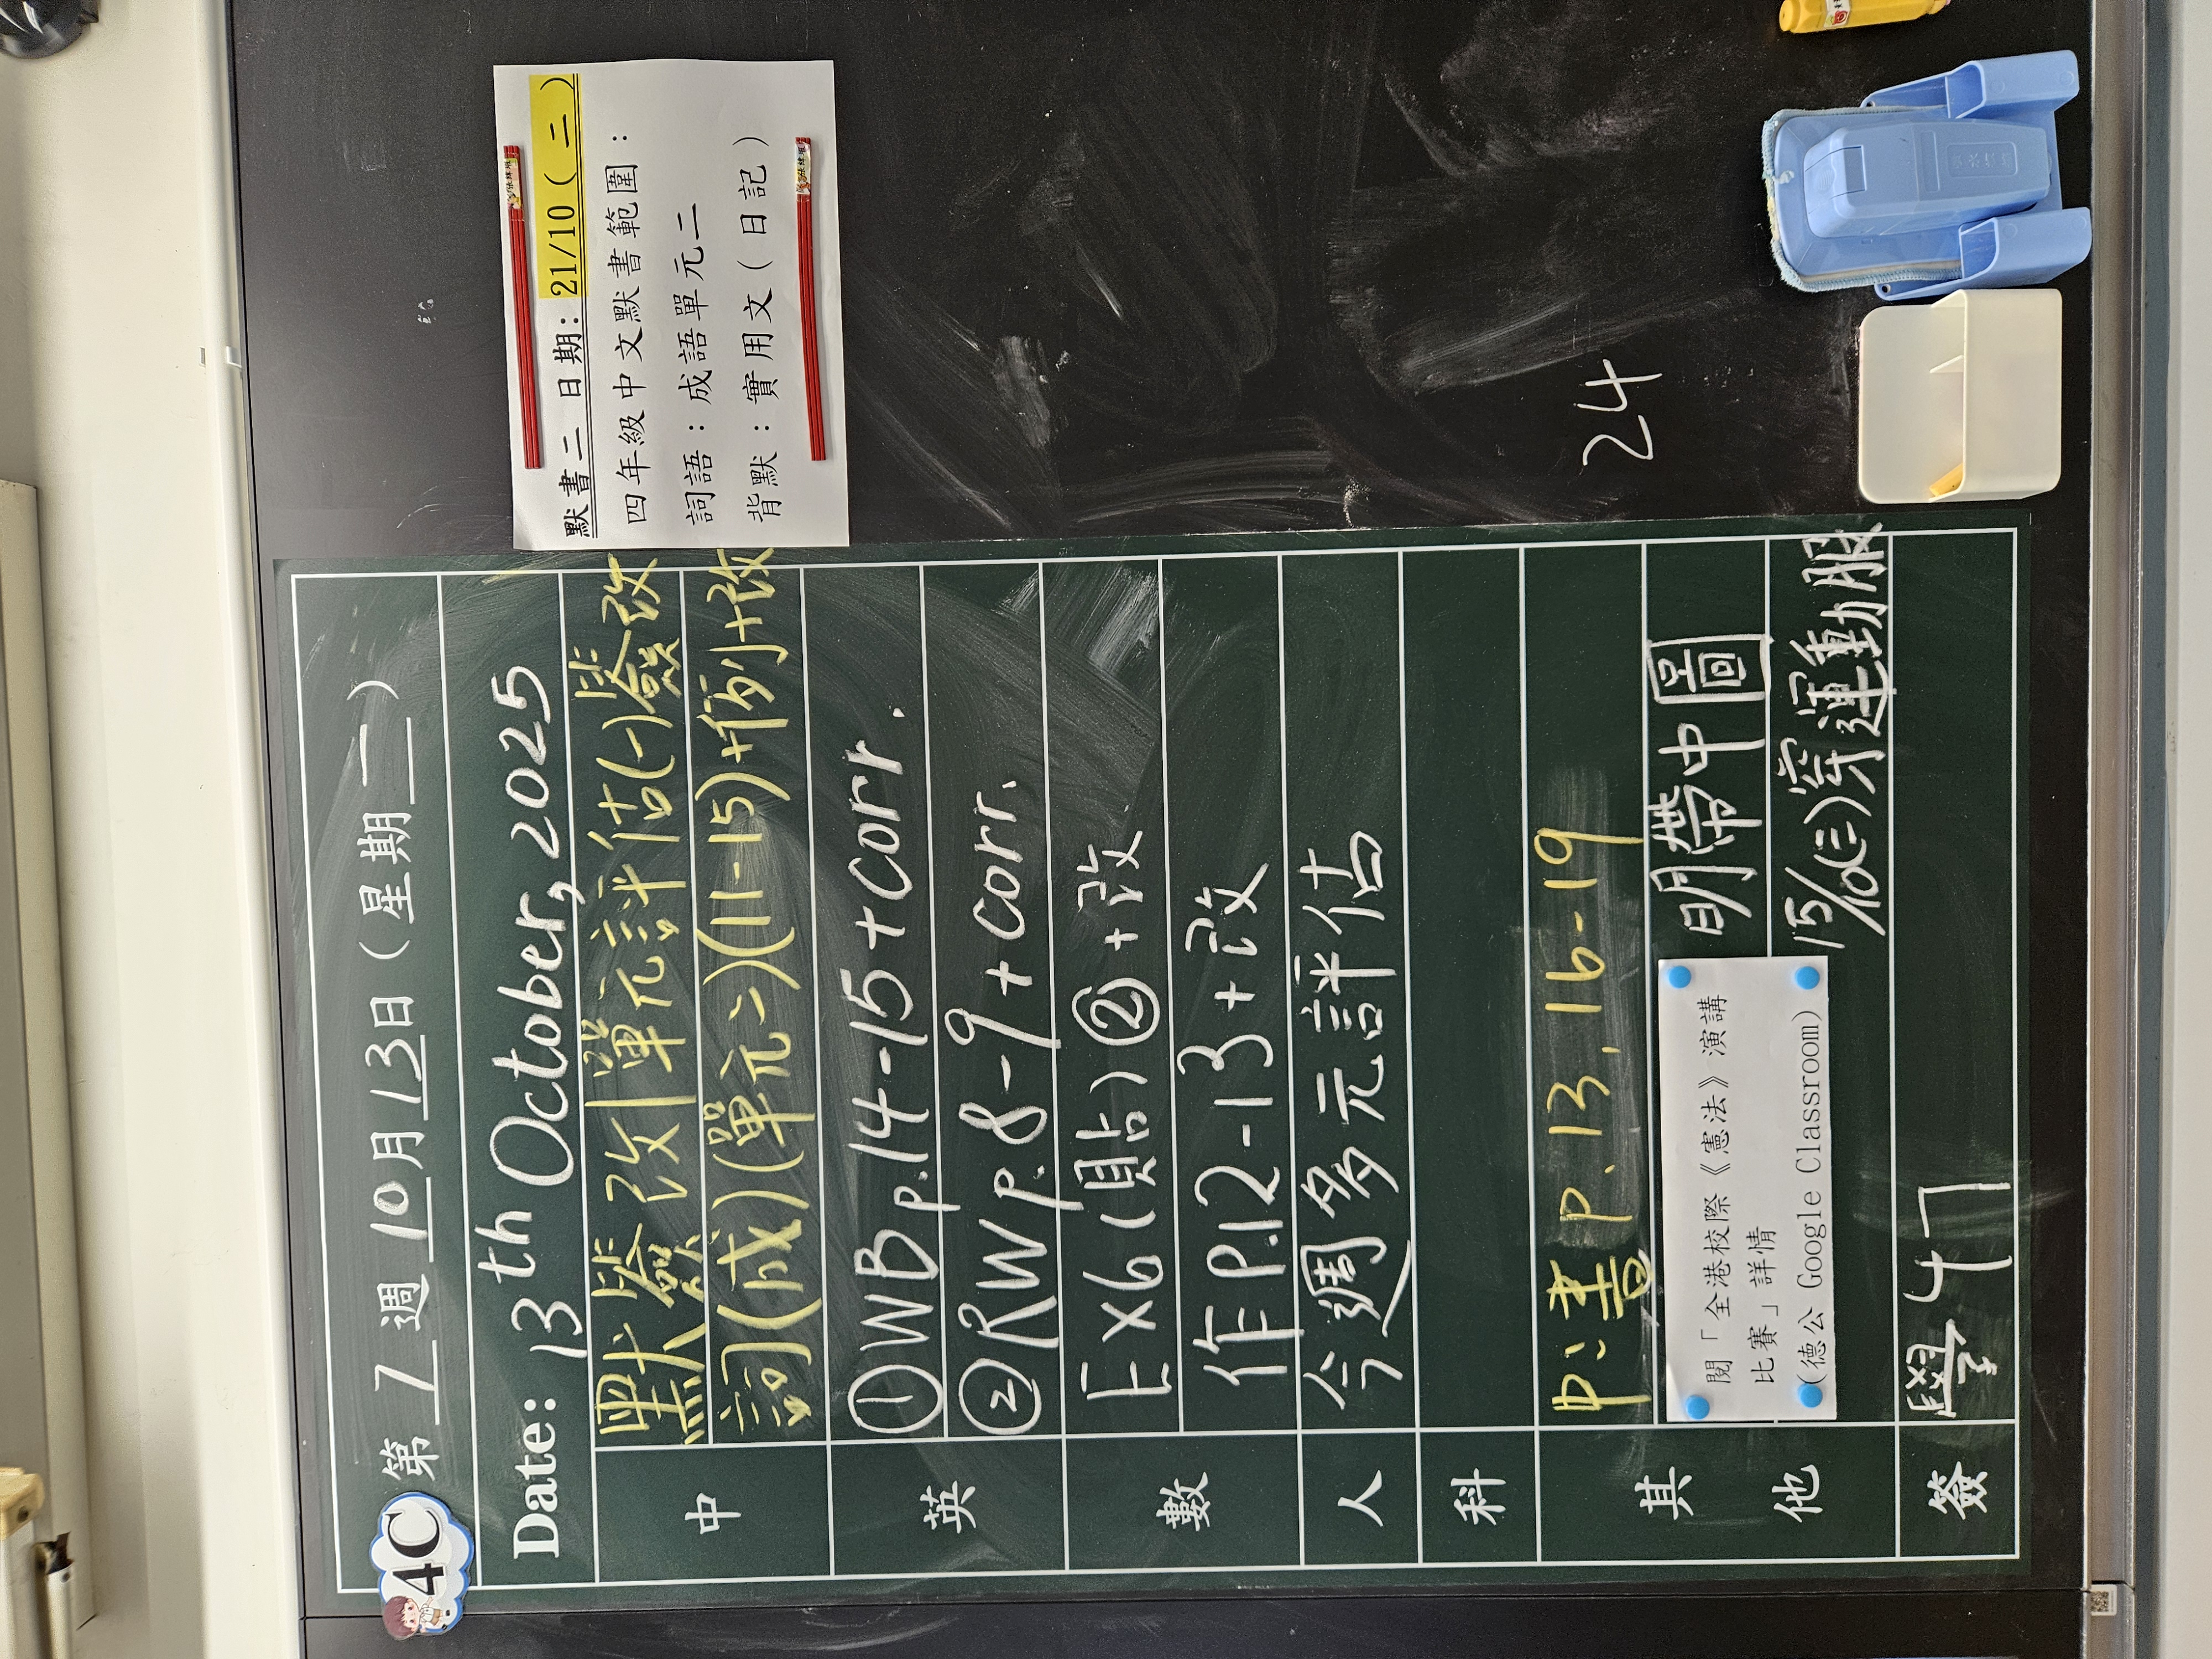 4C 第 7 週 10 月 13 日(星期 一 )
Date: 13th October, 2025
中
默簽改|單元評估(一)簽改
詞(成)(單元二)(11-15)+例+改
英
①WB p.14-15+corr.
②RW p.8-9+corr.
數
Ex6(貼)②+改
作P.12-13+改
人
今週多元評估
科
其他
中:書 p.13, 16-19
閱「全港校際《憲法》演講
比賽」詳情
(德公 Google Classroom)
明帶中圖
15/10(三)穿運動服
簽
學47
默書二 日期: 21/10( 二 )
四年級中文默書範圍:
詞語:成語單元二
背默:實用文(日記)
24